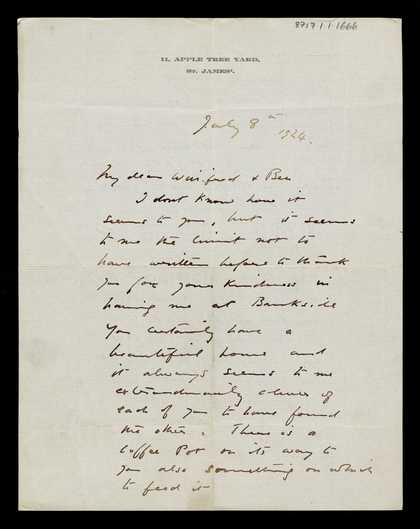 8717/1/1/1666
11, APPLE TREE YARD,
St. JAMES'.
July 8th 1924.
My dear Winifred & Ben
I dont know how it
seems to you, but it seems
to me the limit not to
have written before to thank
you for your kindness in
having me at Bankside
You certainly have a
beautiful home and
it always seems to me
extraordinarily clever of
each of you to have found
the other. There is a
Coffee Pot on its way to
you also something on which
to feed it